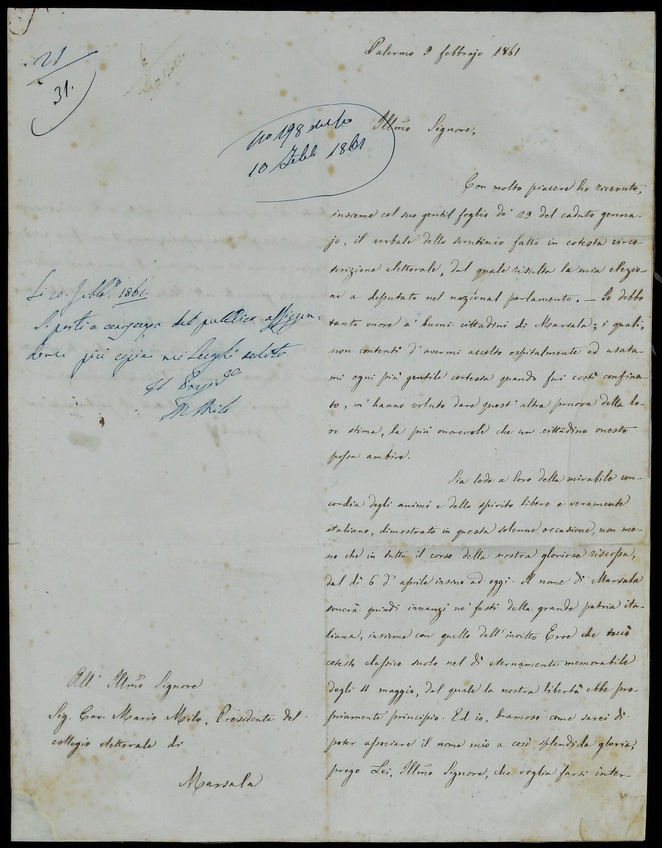 21
31.
Palermo 9 febbrajo 1861
No 198 del
10 Febb 1861
Illmo Signore,
Con molto piacere ho ricevuto,
insieme col suo gentil foglio de' 29 del caduto genna-
jo, il verbale dello scrutinio fatto in cotesta circo-
scrizione elettorale, dal quale risulta la mia elezio-
ne a deputato nel nazional parlamento. — Io debbo
tanto onore a' buoni cittadini di Marsala; i quali,
non contenti d'avermi accolto ospitalmente ed usata-
mi ogni più gentile cortesia quando fui costì confina-
to, m'hanno voluto dare quest'altra pruova della lo-
ro stima, la più onorevole che un cittadino onesto
possa ambire.
Sia lode a loro della mirabile con-
cordia degli animi e dello spirito libero e veramente
italiano, dimostrato in questa solenne occasione, non me-
no che in tutto il corso della nostra gloriosa riscossa,
dal dì 6 d'aprile insino ad oggi. Il nome di Marsala
sonerà quindi innanzi ne' fasti della grande patria ita-
liana, insieme con quello dell'invitto Eroe che toccò
cotesto classico suolo nel dì eternamente memorabile
degli 11 maggio, dal quale la nostra libertà ebbe pro-
priamente principio. Ed io, bramoso come sarei di
poter associare il nome mio a così splendida gloria,
prego Lei, Illmo Signore, che voglia farsi inter-
Li 20 Febb.º 1861
Si porti a conoscenza del pubblico affiggen-
done più copie nei luoghi soliti
Il Presid.e
M Milo
All' Illmo Signore
Sig. Cav. Mario Milo, Presidente del
collegio elettorale di
Marsala